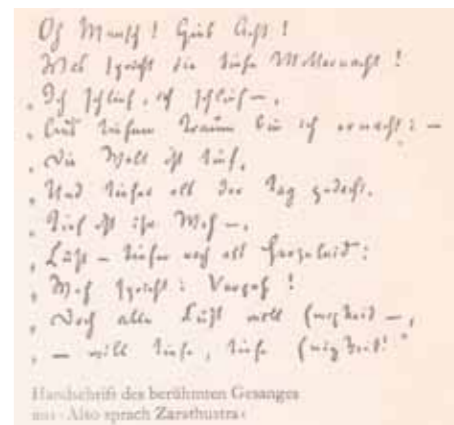 Oh Mensch! Gieb Acht!
Was spricht die tiefe Mitternacht!
„Ich schlief, ich schlief —,
„Aus tiefem Traum bin ich erwacht: —
„Die Welt ist tief,
„Und tiefer als der Tag gedacht.
„Tief ist ihr Weh —,
„Lust — tiefer noch als Herzeleid:
„Weh spricht: Vergeh!
„Doch alle Lust will Ewigkeit —,
„— will tiefe, tiefe Ewigkeit!"
Handschrift des berühmten Gesanges
aus ›Also sprach Zarathustra‹